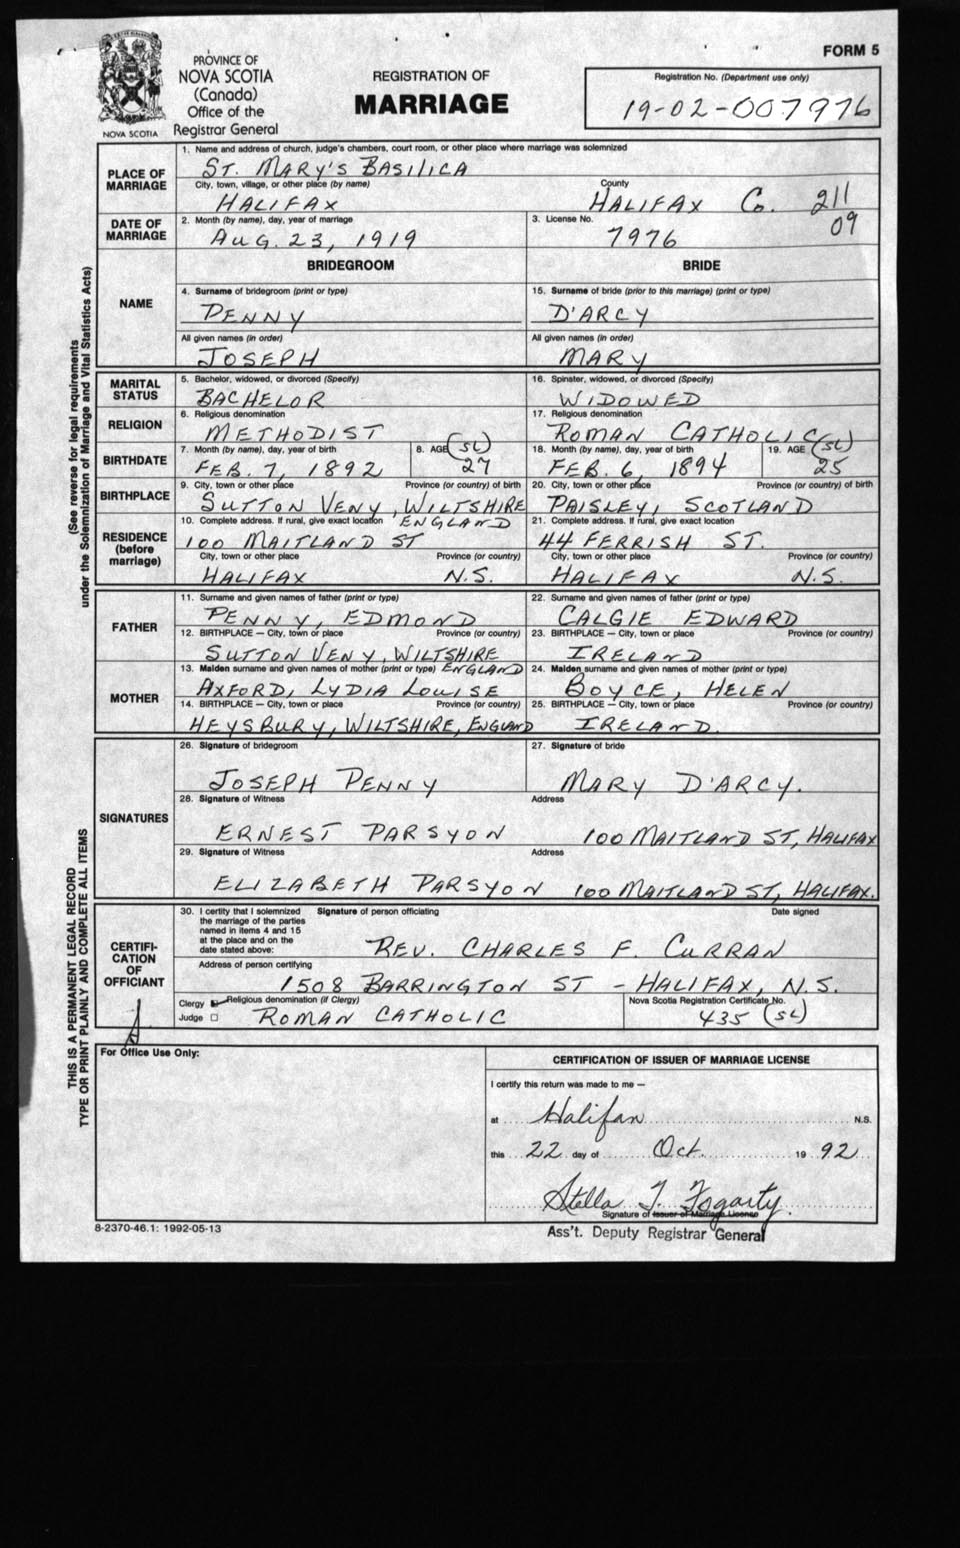 FORM 5
PROVINCE OF
NOVA SCOTIA
(Canada)
Office of the
Registrar General
NOVA SCOTIA
REGISTRATION OF
MARRIAGE
Registration No. (Department use only)
19-02-007976
(See reverse for legal requirements
under the Solemnization of Marriage and Vital Statistics Acts)
THIS IS A PERMANENT LEGAL RECORD
TYPE OR PRINT PLAINLY AND COMPLETE ALL ITEMS
PLACE OF MARRIAGE
1. Name and address of church, judge's chambers, court room, or other place where marriage was solemnized
ST. MARY'S BASILICA
City, town, village, or other place (by name) County
HALIFAX HALIFAX Co. 211
09
DATE OF MARRIAGE
2. Month (by name), day, year of marriage 3. License No.
AUG. 23, 1919 7976
BRIDEGROOM BRIDE
NAME
4. Surname of bridegroom (print or type) 15. Surname of bride (prior to this marriage) (print or type)
PENNY D'ARCY
All given names (in order) All given names (in order)
JOSEPH MARY
MARITAL STATUS
5. Bachelor, widowed, or divorced (Specify) 16. Spinster, widowed, or divorced (Specify)
BACHELOR WIDOWED
RELIGION
6. Religious denomination 17. Religious denomination
METHODIST ROMAN CATHOLIC
BIRTHDATE
7. Month (by name), day, year of birth 8. AGE (SL) 18. Month (by name), day, year of birth 19. AGE (SL)
FEB. 7, 1892 27 FEB. 6, 1894 25
BIRTHPLACE
9. City, town or other place Province (or country) of birth 20. City, town or other place Province (or country) of birth
SUTTON VENY, WILTSHIRE PAISLEY, SCOTLAND
ENGLAND
RESIDENCE (before marriage)
10. Complete address. If rural, give exact location 21. Complete address. If rural, give exact location
100 MAITLAND ST 44 FERRISH ST.
City, town or other place Province (or country) City, town or other place Province (or country)
HALIFAX N.S. HALIFAX N.S.
FATHER
11. Surname and given names of father (print or type) 22. Surname and given names of father (print or type)
PENNY, EDMOND CALGIE EDWARD
12. BIRTHPLACE — City, town or place Province (or country) 23. BIRTHPLACE — City, town or place Province (or country)
SUTTON VENY, WILTSHIRE IRELAND
ENGLAND
MOTHER
13. Maiden surname and given names of mother (print or type) 24. Maiden surname and given names of mother (print or type)
AXFORD, LYDIA LOUISE BOYCE, HELEN
14. BIRTHPLACE — City, town or place Province (or country) 25. BIRTHPLACE — City, town or place Province (or country)
HEYSBURY, WILTSHIRE, ENGLAND IRELAND.
SIGNATURES
26. Signature of bridegroom 27. Signature of bride
JOSEPH PENNY MARY D'ARCY.
28. Signature of Witness Address
ERNEST PARSYON 100 MAITLAND ST, HALIFAX
29. Signature of Witness Address
ELIZABETH PARSYON 100 MAITLAND ST, HALIFAX.
CERTIFI-
CATION
OF
OFFICIANT
30. I certify that I solemnized Signature of person officiating Date signed
the marriage of the parties
named in items 4 and 15
at the place and on the
date stated above:
REV. CHARLES F. CURRAN
Address of person certifying
1508 BARRINGTON ST - HALIFAX, N.S.
Clergy Religious denomination (if Clergy) Nova Scotia Registration Certificate No.
Judge ROMAN CATHOLIC 435 (SL)
For Office Use Only:
CERTIFICATION OF ISSUER OF MARRIAGE LICENSE
I certify this return was made to me —
at Halifax N.S.
this 22 day of Oct. 19 92
Stella T. Fogarty
Signature of Issuer of Marriage License
Ass't. Deputy Registrar General
8-2370-46.1: 1992-05-13